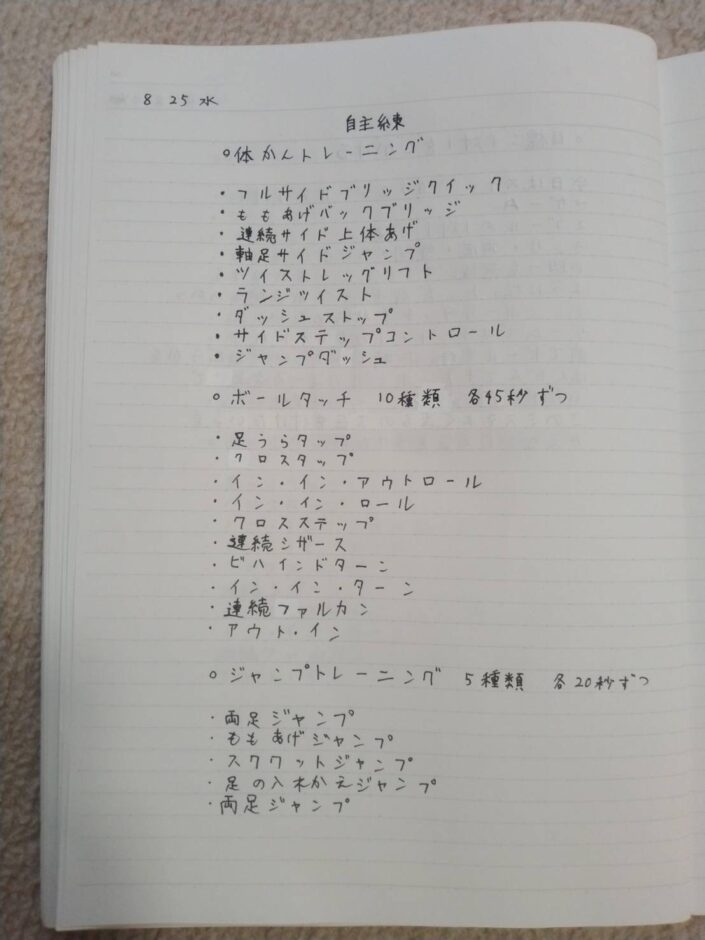 8 25 水
自主練
○体かんトレーニング
・フルサイドブリッジクイック
・ももあげバックブリッジ
・連続サイド上体あげ
・軸足サイドジャンプ
・ツイストレッグリフト
・ランジツイスト
・ダッシュストップ
・サイドステップコントロール
・ジャンプダッシュ
○ボールタッチ 10種類 各45秒ずつ
・足うらタップ
・クロスタップ
・イン・イン・アウトロール
・イン・イン・ロール
・クロスステップ
・連続シザース
・ビハインドターン
・イン・イン・ターン
・連続ファルカン
・アウト・イン
○ジャンプトレーニング 5種類 各20秒ずつ
・両足ジャンプ
・ももあげジャンプ
・スクワットジャンプ
・足の入れかえジャンプ
・両足ジャンプ